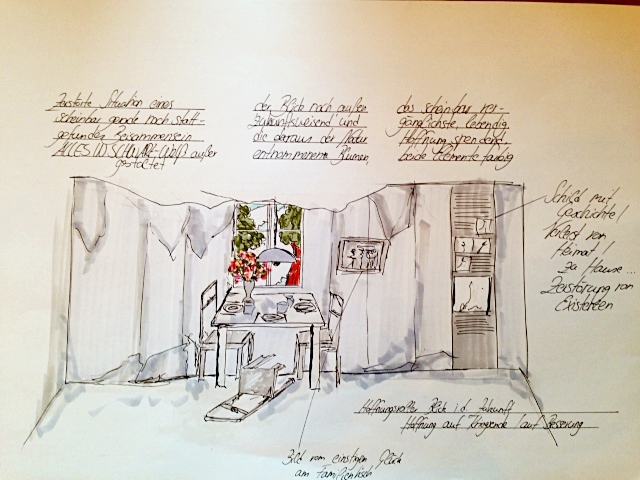 Zerstörte Situation eines
scheinbar gerade noch statt-
gefunden Beisammensein
ALLES IN SCHWARZ-Weiß außer
gestaltet
der Blick nach außen
zukunftsweisend und
die daraus der Natur
entnommenen Blumen,
das scheinbar ver-
gänglichste, lebendig
Hoffnung spendend,
beide Elemente farbig
Schild mit
Geschichte!
Verlust von
Heimat!
zu Hause...
Zerstörung von
Existenzen
Hoffnungsvoller Blick i.d. Zukunft
Hoffnung auf / auf Besserung
Bild vom einstigen Glück
am Familientisch